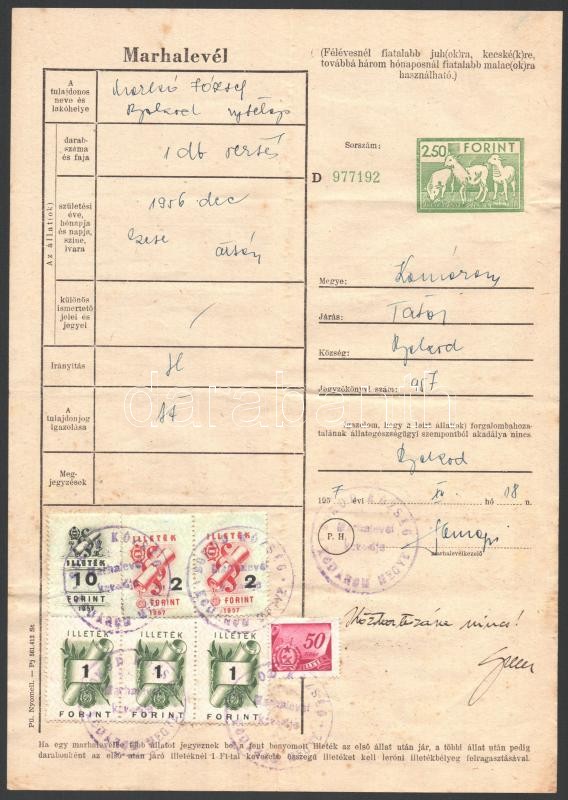 Marhalevél
(Félévesnél fiatalabb juh(ok)ra, kecské(k)re,
továbbá három hónaposnál fiatalabb malac(ok)ra
használható.)
A
tulajdonos
neve és
lakóhelye
József
Az állat(ok)
darab-
száma
és faja
1 db sertés
születési
éve,
hónapja
és napja,
színe,
ivara
1956 dec
ártány
különös
ismertető
jelei és
jegyei
Irányítás
A
tulajdonjog
igazolása
Meg-
jegyzések
Sorszám:
D 977192
2.50 FORINT
Megye: Komárom
Járás: Tatai
Község:
Jegyzőkönyvi szám: 957
Igazolom, hogy a fenti állat(ok) forgalombahoza-
talának állategészségügyi szempontból akadálya nincs
1957 évi XI. hó 18 n.
P. H.
marhalevélkezelő
ILLETÉK
10
FORINT
1957
ILLETÉK
2
FORINT
1957
ILLETÉK
2
FORINT
1957
ILLETÉK
1
FORINT
ILLETÉK
1
FORINT
ILLETÉK
1
FORINT
50
Marhalevél
kezelője
nincs!
Pü. Nyomell. — Pj 561.412 St
Ha egy marhalevélbe több állatot jegyeznek be, a fent benyomott illeték az első állat után jár, a többi állat után pedig
darabonként az első után járó illetéknél 1 Ft-tal kevesebb összegű illetéket kell leróni illetékbélyeg felragasztásával.
darabanth